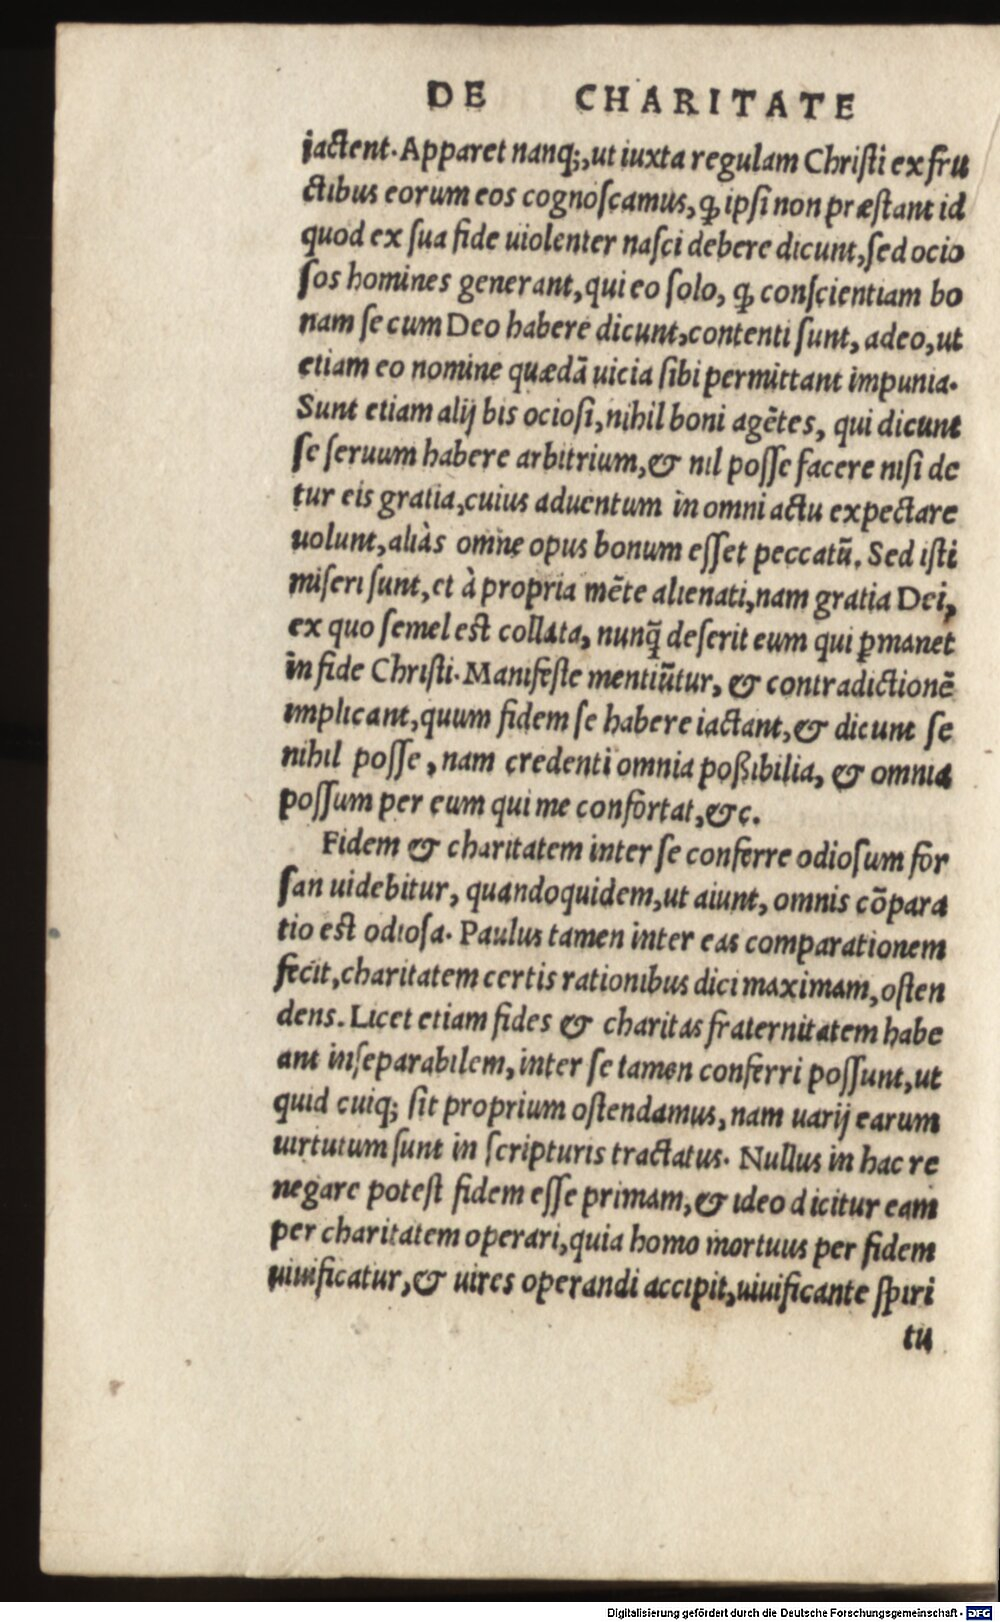 DE CHARITATE
iactent. Apparet nanq;, ut iuxta regulam Christi ex fru
ctibus eorum eos cognoscamus, ꝙ ipsi non præstant id
quod ex sua fide uiolenter nasci debere dicunt, sed ocio
sos homines generant, qui eo solo, ꝙ conscientiam bo
nam se cum Deo habere dicunt, contenti sunt, adeo, ut
etiam eo nomine quædã uicia sibi permittant impunia.
Sunt etiam alij bis ociosi, nihil boni agẽtes, qui dicunt
se seruum habere arbitrium, & nil posse facere nisi de
tur eis gratia, cuius aduentum in omni actu expectare
uolunt, aliàs omne opus bonum esset peccatũ. Sed isti
miseri sunt, et à propria mẽte alienati, nam gratia Dei,
ex quo semel est collata, nunq̃ deserit eum qui ꝑmanet
in fide Christi. Manifeste mentiũtur, & contradictionẽ
implicant, quum fidem se habere iactant, & dicunt se
nihil posse, nam credenti omnia poßibilia, & omnia
possum per eum qui me confortat, &c.
Fidem & charitatem inter se conferre odiosum for
san uidebitur, quandoquidem, ut aiunt, omnis cõpara
tio est odiosa. Paulus tamen inter eas comparationem
fecit, charitatem certis rationibus dici maximam, osten
dens. Licet etiam fides & charitas fraternitatem habe
ant inseparabilem, inter se tamen conferri possunt, ut
quid cuiq; sit proprium ostendamus, nam uarij earum
uirtutum sunt in scripturis tractatus. Nullus in hac re
negare potest fidem esse primam, & ideo dicitur eam
per charitatem operari, quia homo mortuus per fidem
uiuificatur, & uires operandi accipit, uiuificante spiri
tu
Digitalisierung gefördert durch die Deutsche Forschungsgemeinschaft - DFG